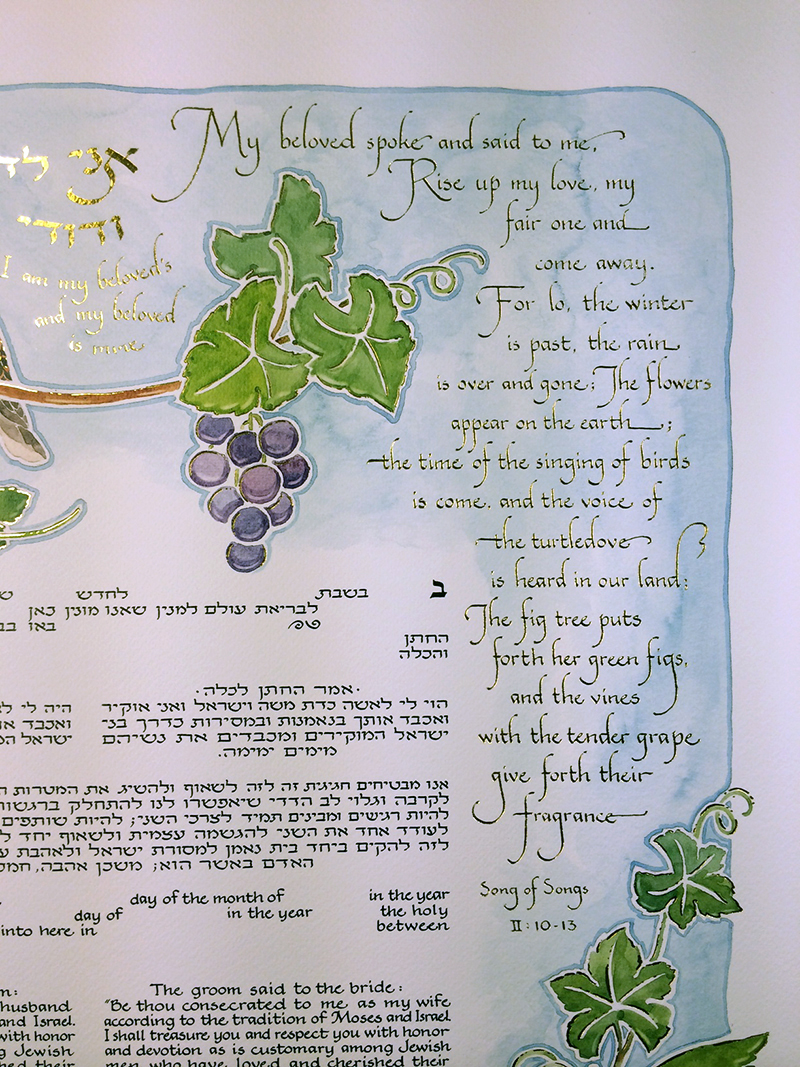 My beloved spoke and said to me,
Rise up my love, my
fair one and
come away.
For lo, the winter
is past, the rain
is over and gone; The flowers
appear on the earth;
the time of the singing of birds
is come, and the voice of
the turtledove
is heard in our land;
The fig tree puts
forth her green figs,
and the vines
with the tender grape
give forth their
fragrance
Song of Songs
II:10-13
אני
ודודי
I am my beloved's
and my beloved
is mine
ב בשבת לחדש
לבריאת עולם למנין שאנו מונין כאן
באו
החתן
והכלה
אמר החתן לכלה.
הוי לי לאשה כדת משה וישראל ואני אוקיר
ואכבד אותך בנאמנות ובמסירות כדרך בני
ישראל המוקירים ומכבדים את נשיהם
מימים ימימה.
היה לי
ואכבד
ישראל
אנו מבטיחים חגיגת זה לזה לשאוף ולהשיג את המטרות
לקרבה וגלוי לב הדדי שיאפשרו לנו להתחלק ברגשות
להיות רגישים ומבינים תמיד לצרכי השני; להיות שותפים
לעודד אחד את השני להגשמה עצמית ולשאוף יחד
לזה להקים ביחד בית נאמן למסורת ישראל ולאהבת
האדם באשר הוא; משכן אהבה,
day of the month of in the year
day of in the year the holy
into here in between
The groom said to the bride:
"Be thou consecrated to me as my wife
according to the tradition of Moses and Israel.
I shall treasure you and respect you with honor
and devotion as is customary among Jewish
men who have loved and cherished their
husband
and Israel.
with honor
Jewish
their